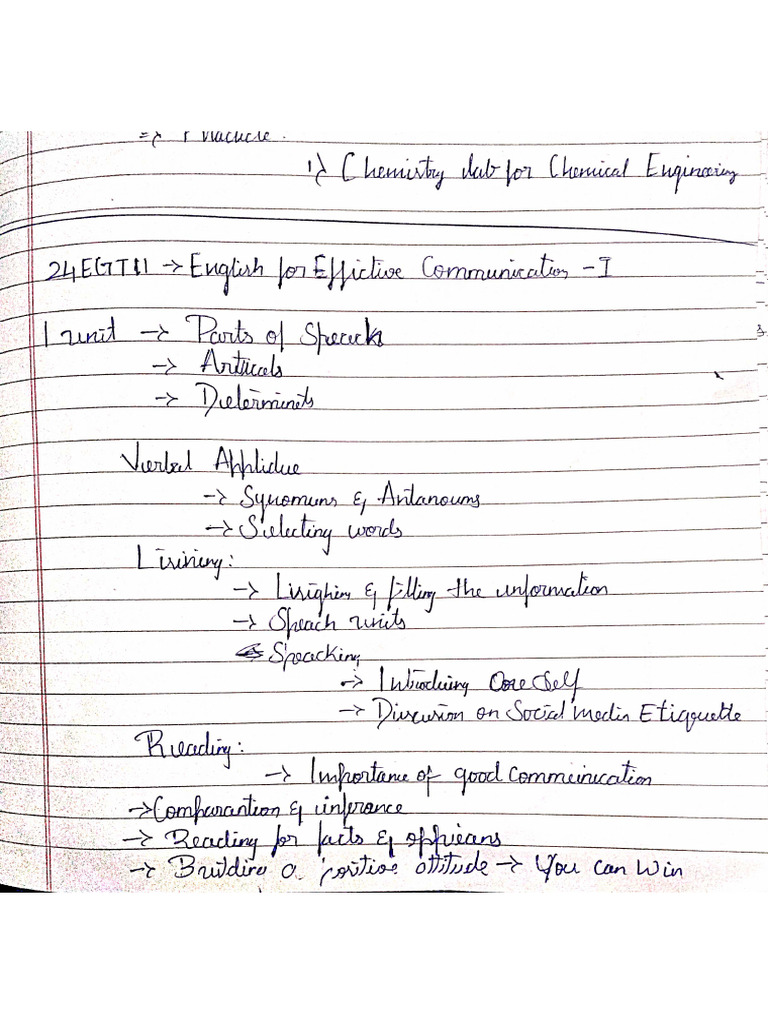 1) Chemistry lab for Chemical Engineering
24EGT111 → English for Effictive Communication - I
1 unit → Parts of Speech
→ Articals
→ Determinets
Verbal Applidue
→ Synomums & Antanoums
→ Selecting words
Lisining:
→ & filling the information
→ Speach units
Speacking
→ Introducing One Self
→ Discusion on Social Media Etiquette
Reading:
→ Importance of good Communication
→ Comparantion & inferance
→ Reading for facts & oppieans
→ Building a positive attitude → You can Win